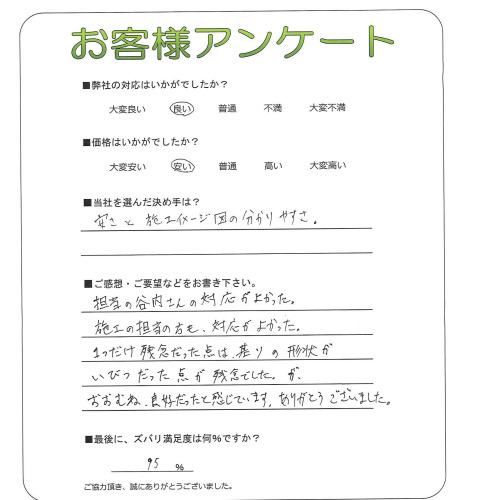 お客様アンケート
■弊社の対応はいかがでしたか？
大変良い 良い 普通 不満 大変不満
■価格はいかがでしたか？
大変安い 安い 普通 高い 大変高い
■当社を選んだ決め手は？
安さと施工イメージ図の分かりやすさ。
■ご感想・ご要望などをお書き下さい。
担当の谷内さんの対応がよかった。
施工の担当の方も、対応がよかった。
1つだけ残念だった点は、塀りの形状が
いびつだった点が残念でした。が、
おおむね、良好だったと感じています。ありがとうございました。
■最後に、ズバリ満足度は何%ですか？
95 %
ご協力頂き、誠にありがとうございました。